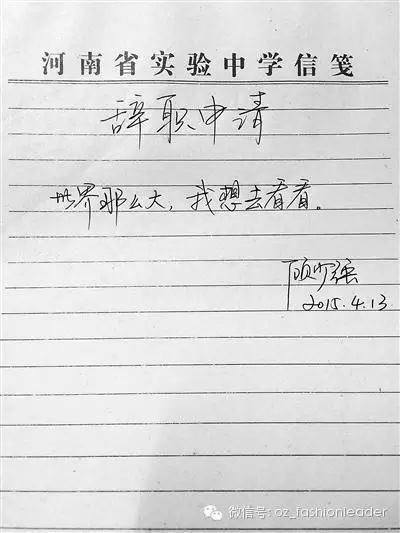 河南省实验中学信笺
辞职申请
世界那么大，我想去看看。
顾少强
2015.4.13
微信号: oz_fashionleader